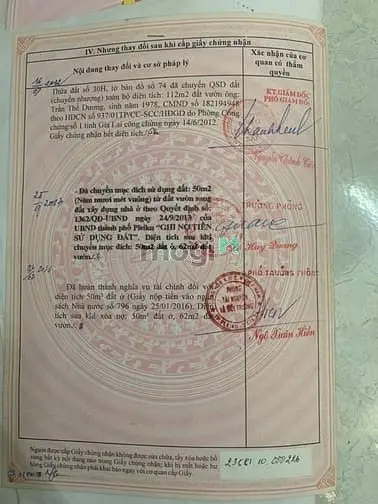 IV. Những thay đổi sau khi cấp giấy chứng nhận
Nội dung thay đổi và cơ sở pháp lý
Xác nhận của cơ
quan có thẩm
quyền
Thửa đất số 30H, tờ bản đồ số 74 đã chuyển QSD đất
(chuyển nhượng) toàn bộ diện tích: 112m2 đất vườn ông:
Trần Thế Dương, sinh năm 1978, CMND số 182194948
theo HĐCN số 937/01TP/CC-SCC/HĐGD do Phòng Công
chứng số 1 tỉnh Gia Lai công chứng ngày 14/6/2012.
Giấy chứng nhận hết diện tích.
KT.GIÁM ĐỐC
PHÓ GIÁM ĐỐC
- Đã chuyển mục đích sử dụng đất: 50m2
(Năm mươi mét vuông) từ đất vườn sang
đất xây dựng nhà ở theo Quyết định số:
1362/QĐ-UBND ngày 24/9/2013 của
UBND thành phố Pleiku "GHI NỢ TIỀN
SỬ DỤNG ĐẤT". Diện tích sau khi
chuyển mục đích: 50m2 đất ở, 62m2 đất
vườn.
TRƯỞNG PHÒNG
Huy Dương
mogi
Đã hoàn thành nghĩa vụ tài chính đối với
diện tích 50m2 đất ở (Giấy nộp tiền vào ngân
sách Nhà nước số 796 ngày 25/01/2016). Diện
tích sau khi xóa nợ: 50m2 đất ở, 62m2 đất
vườn.
PHÓ TRƯỞNG PHÒNG
PHÒNG
TÀI NGUYÊN
VÀ MÔI TRƯỜNG
Ngô Xuân Hiền
Người được cấp Giấy chứng nhận không được sửa chữa, tẩy xóa hoặc bổ
sung bất kỳ nội dung nào trong Giấy chứng nhận; khi bị mất hoặc hư
hỏng Giấy chứng nhận phải khai báo ngay với cơ quan cấp Giấy.